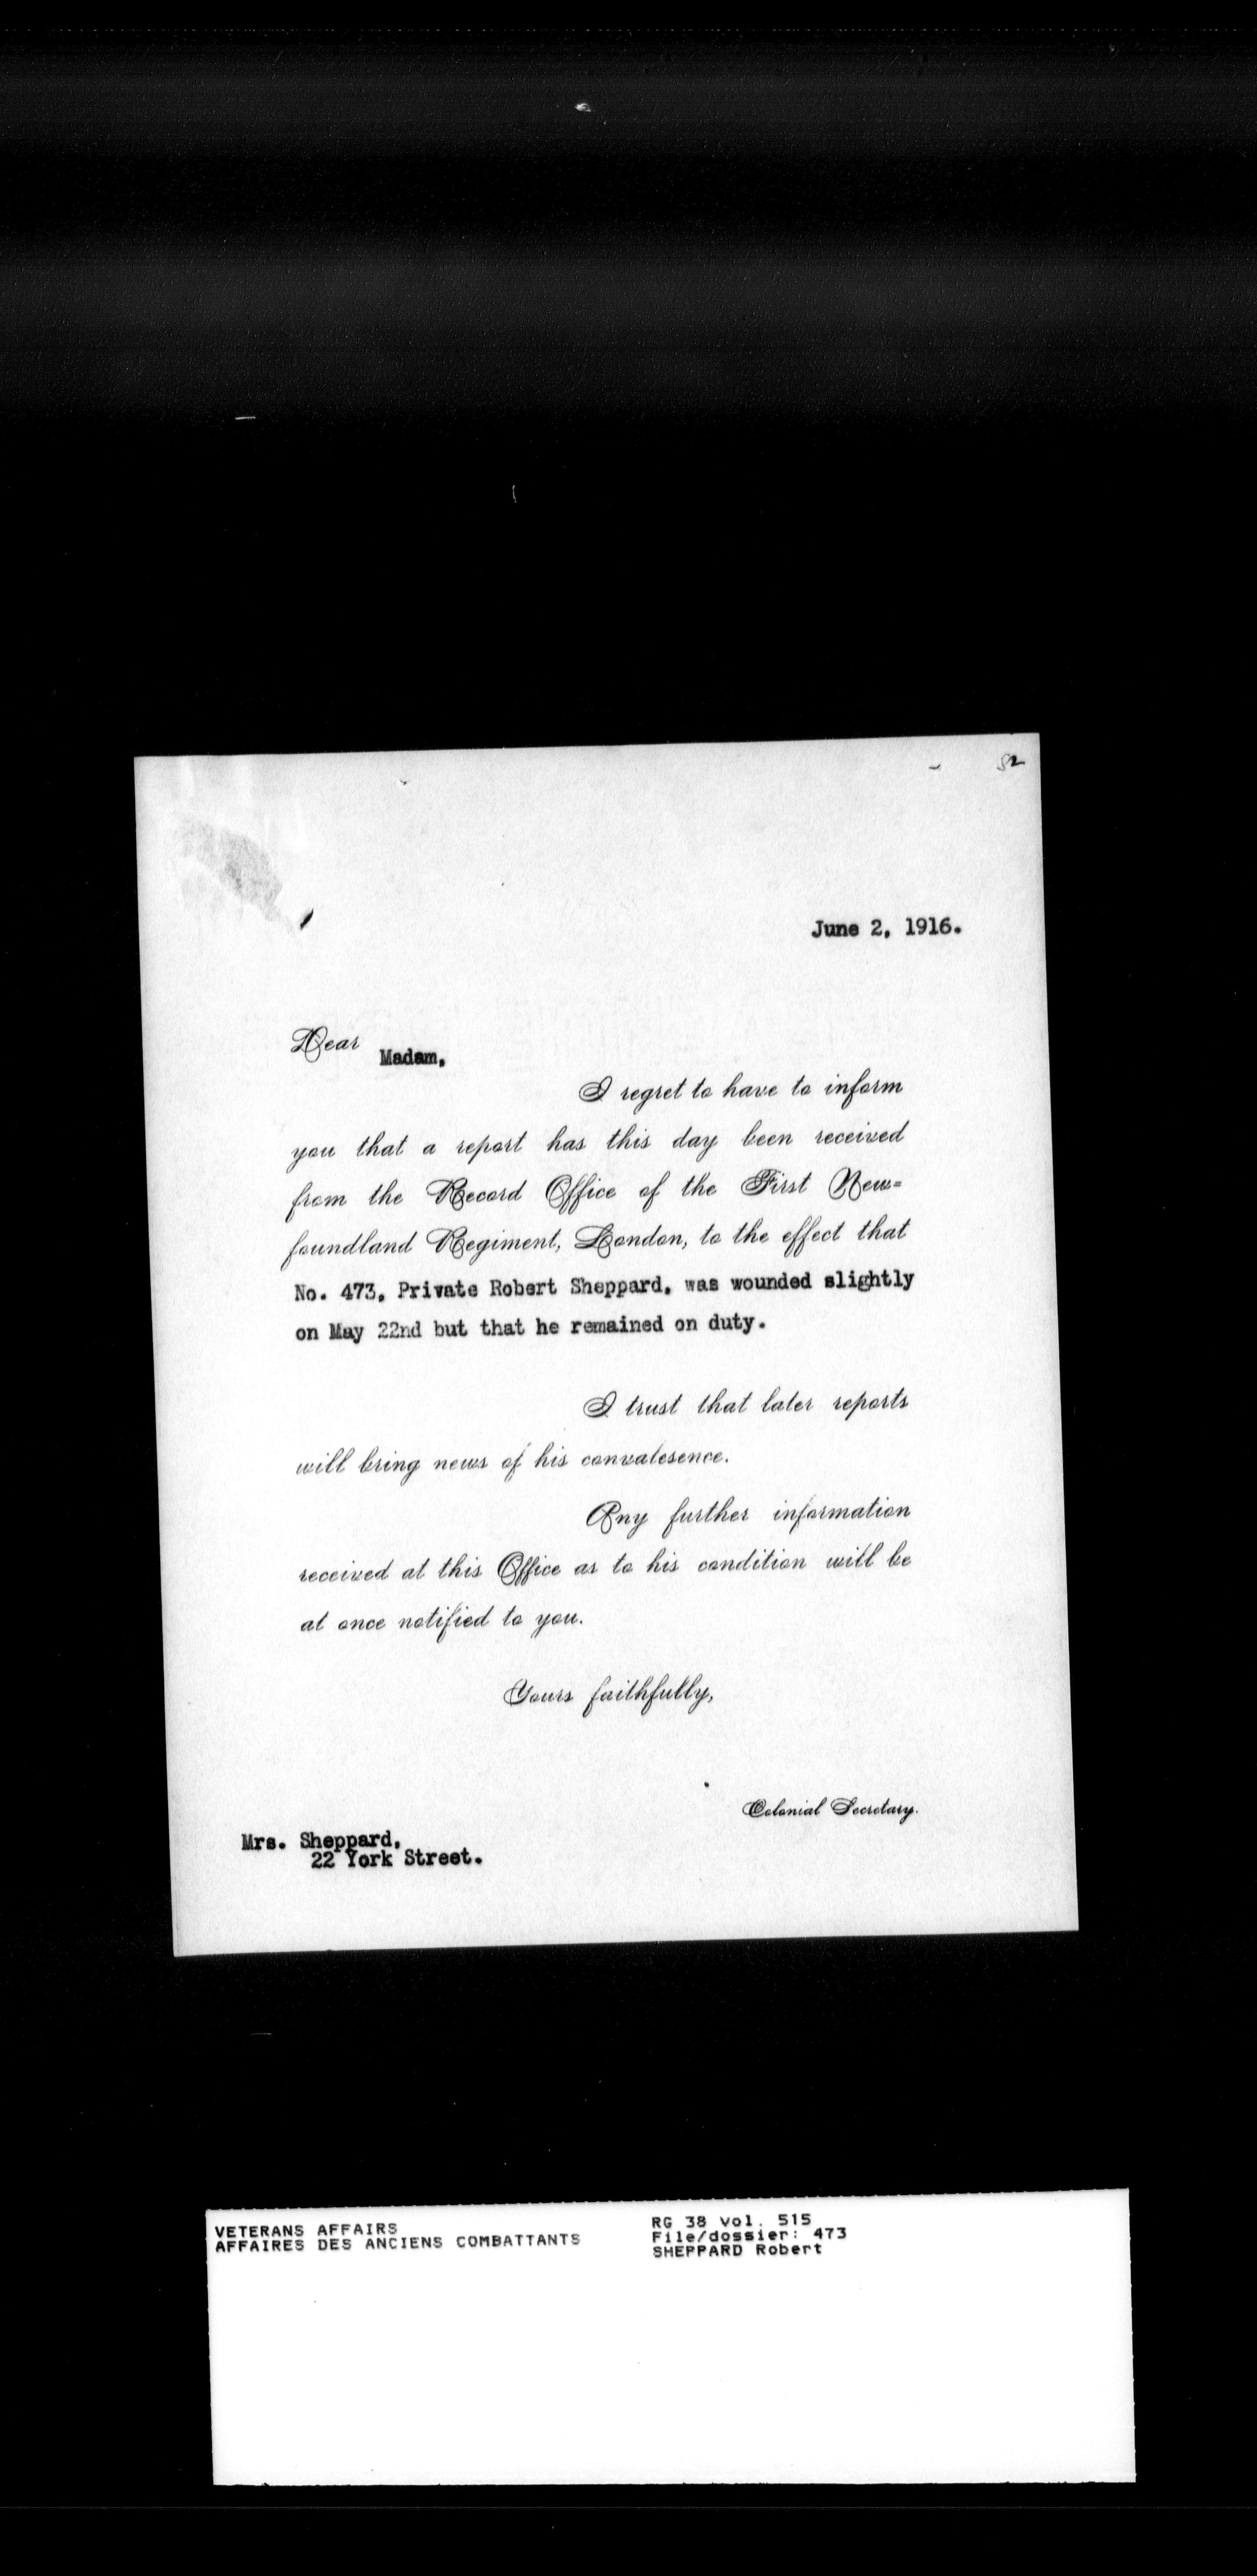 52
June 2, 1916.
Dear Madam,
I regret to have to inform
you that a report has this day been received
from the Record Office of the First New=
foundland Regiment, London, to the effect that
No. 473, Private Robert Sheppard, was wounded slightly
on May 22nd but that he remained on duty.
I trust that later reports
will bring news of his convalesence.
Any further information
received at this Office as to his condition will be
at once notified to you.
Yours faithfully,
Colonial Secretary.
Mrs. Sheppard,
22 York Street.
VETERANS AFFAIRS
AFFAIRES DES ANCIENS COMBATTANTS
RG 38 vol. 515
File/dossier: 473
SHEPPARD Robert